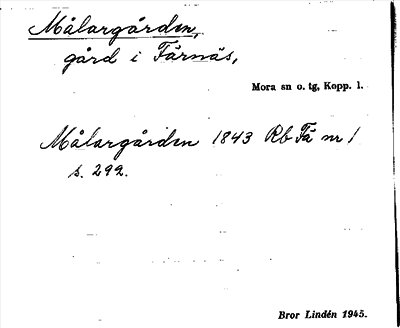 Målargården,
gård i Färnäs,
Mora sn o. tg, Kopp. l.
Målargården 1843 Rb Fä nr 1
s. 292.
Bror Lindén 1945.